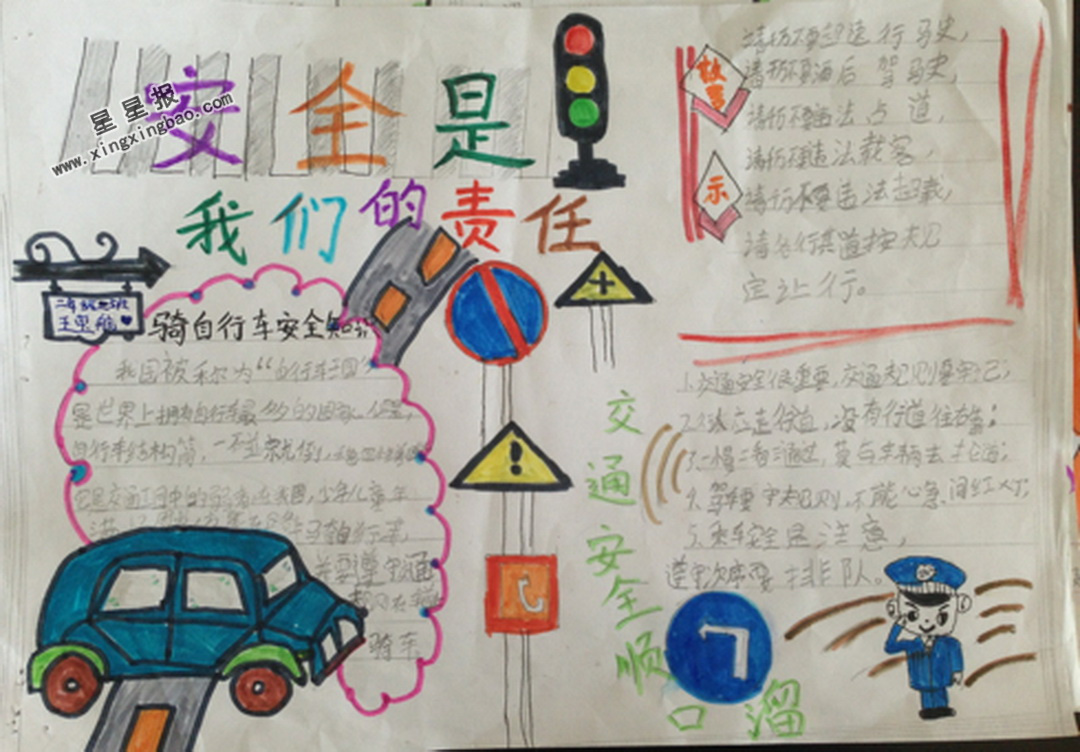 安全是
我们的责任
星星报
www.xingxingbao.com
警示
请你不要超速行驶,
请你不要酒后驾驶,
请你不要违法占道,
请你不要违法载客,
请你不要违法超载,
请各行其道按规
定让行。
二年级
骑自行车安全知识
我国被称为“自行车王国”
是世界上拥有自行车最多的国家
自行车结构简
它是交通工具中的弱者,在我国,少年儿童年
满
骑自行车,
并要遵守交通
骑车
交通安全顺口溜
1.交通安全很重要,交通规则要牢记,
2.
没有行道往右靠;
3.一慢二看三通过,莫与车辆去抢道;
4.驾车要守规则,不能心急闯红灯,
5.乘车安全是注意,
遵守次序要排队。